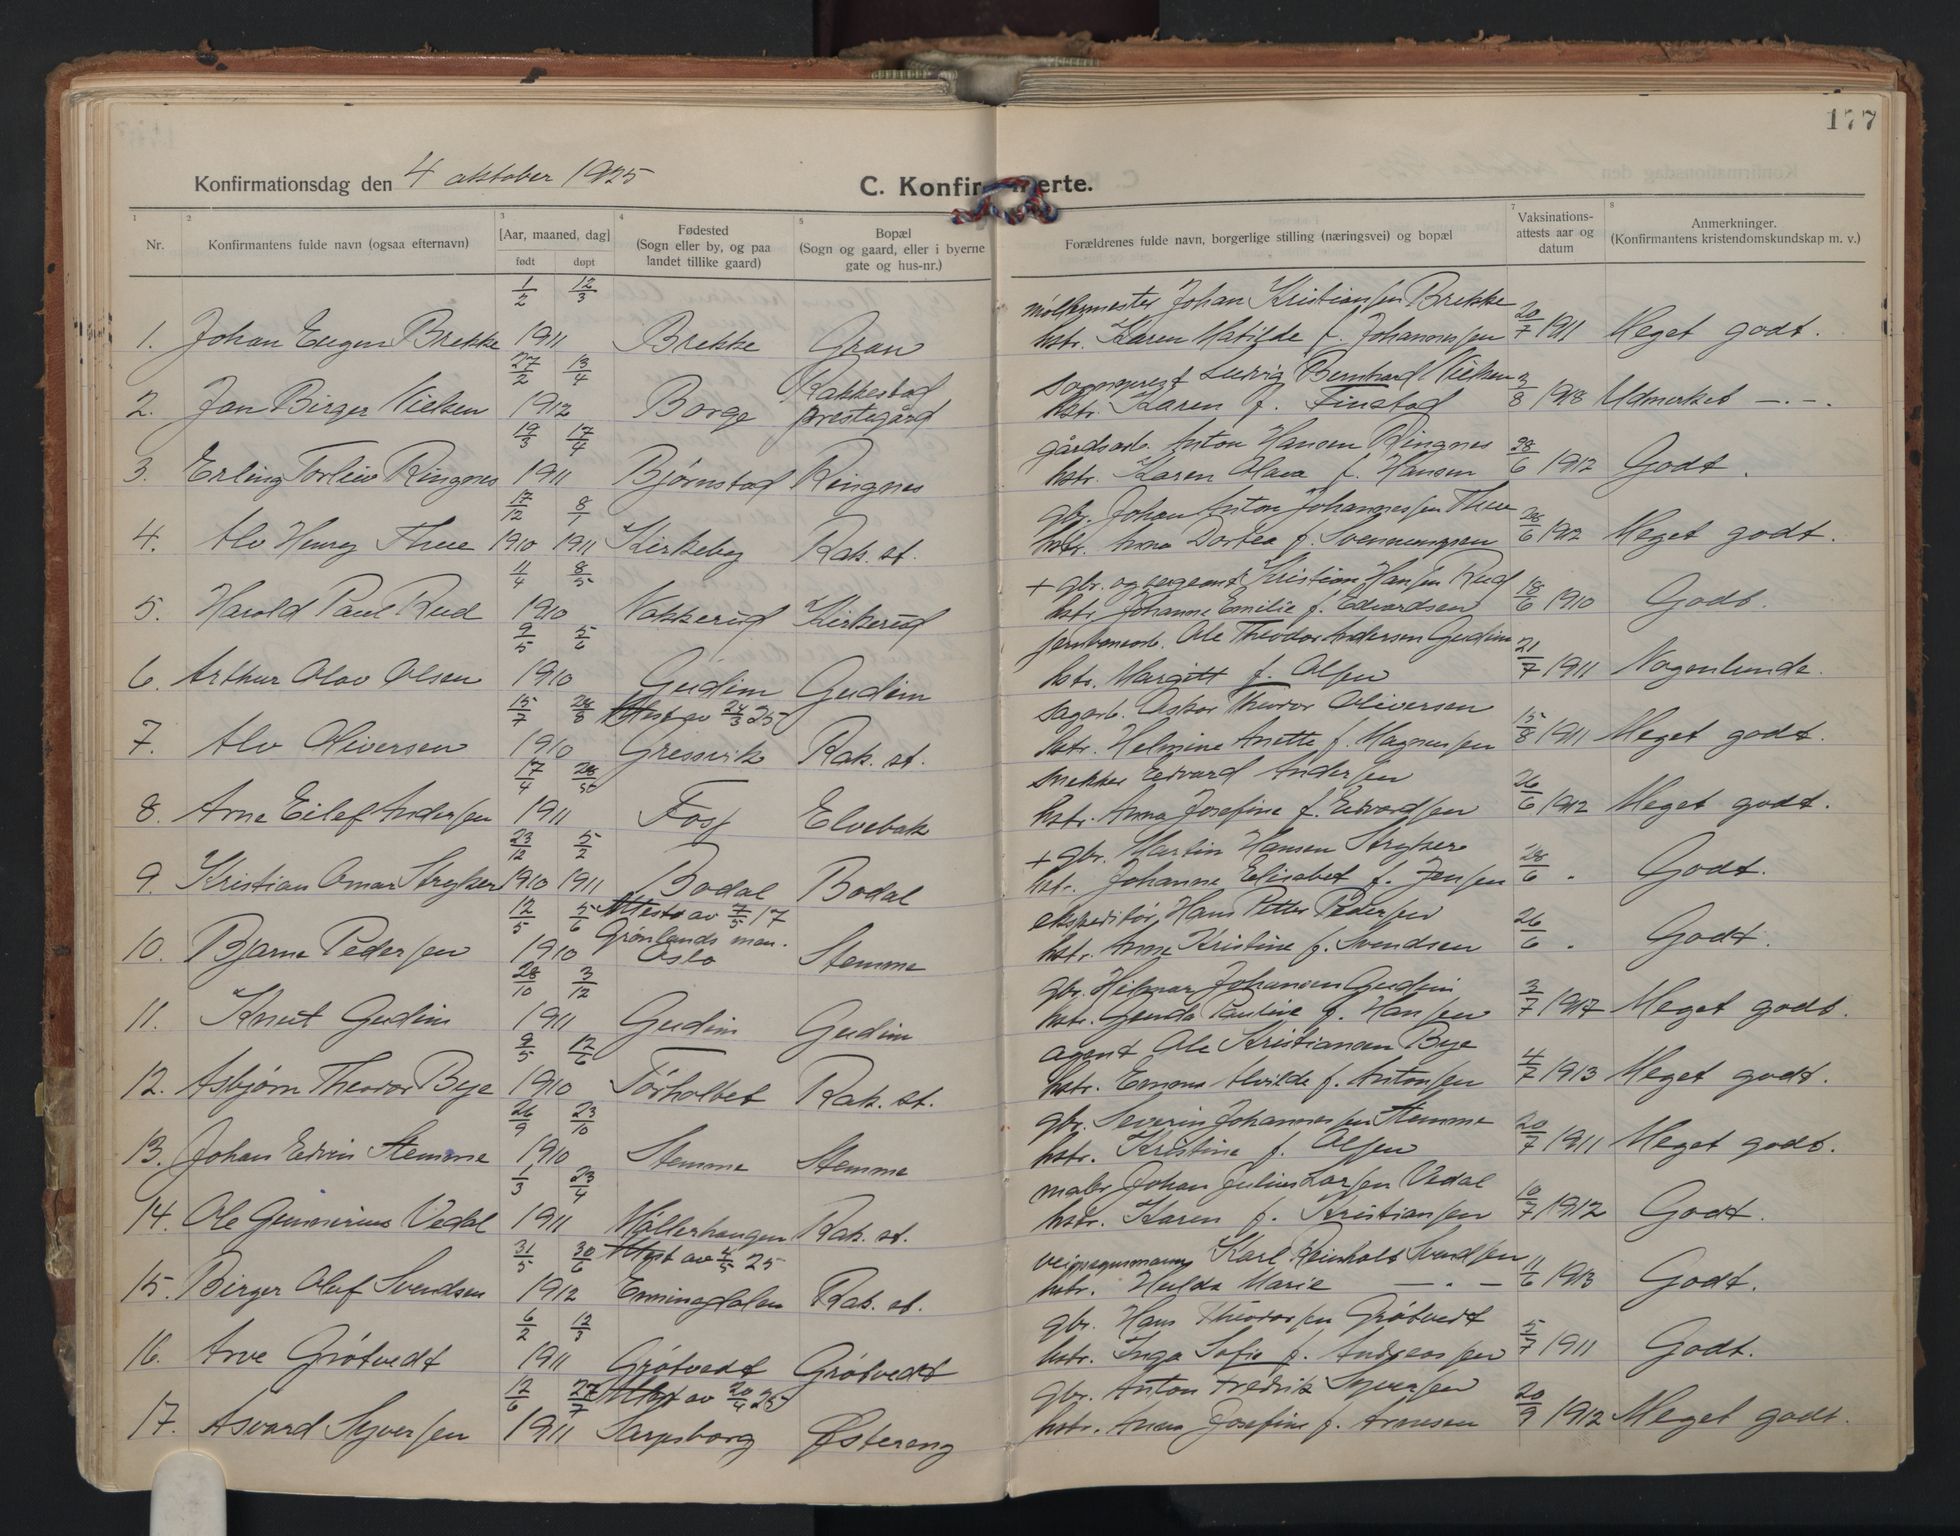 177
Konfirmationsdag den 4 oktober 1925 C. Konfir merte.
1 2 3 4 5 7 8
Nr. Konfirmantens fulde navn (ogsaa efternavn) [Aar, maaned, dag] født døpt Fødested (Sogn eller by, og paa landet tillike gaard) Bopæl (Sogn og gaard, eller i byerne gate og hus-nr.) Forældrenes fulde navn, borgerlige stilling (næringsvei) og bopæl Vaksinations-attests aar og datum Anmerkninger. (Konfirmantens kristendomskundskap m. v.)
1/2 12/3 Johan Kristiansen Brekke
1. Johan Eugen Brekke 1911 Brekke Gran hstr. Karen Matilde f. Johannessen 20/7 1911 Meget godt.
27/2 13/4 Rakkestad sogneprest Ludvig Bernhard Nielsen
2. Jan Birger Nielsen 1912 Borge prestegård hstr. Karen f. Finstad 2/8 1918 Udmerket —.—.
19/3 17/4 gårdsarb. Anton Hansen Ringnes
3. Erling Torleiv Ringnes 1911 Bjørnstad Ringnes hstr. Karen Olava f. Hansen 28/6 1912 Godt.
17/12 8/1 gbr. Johan Anton Johannessen Thue
4. Alv Henry Thue 1910 1911 Kirkeby Rak. st. hstr. Anna Dortea f. Svenningsen 28/6 1912 Meget godt.
11/4 8/5 + gbr. og sergeant Kristian Hansen Rud
5. Harold Paul Rud 1910 Nakkerud Kirkerud hstr. Johanne Emilie f. Edvardsen 18/6 1910 Godt.
9/5 5/6 jernbanearb. Ole Theodor Andersen Gudim
6. Arthur Olav Olsen 1910 Gudim Gudim hstr. Margitt f. Olsen 21/7 1911 Nogenlunde.
15/7 28/8 Attest av 24/3 25 sagarb. Oskar Theodor Oliversen
7. Alv Oliversen 1910 Gressvik Rak. st. hstr. Helmine Anette f. Magnussen 15/8 1911 Meget godt.
17/4 snekker Edvard Andersen
8. Arne Eilef Andersen 1911 Foss Elvebak hstr. Anna Josefine f. Edvardsen 26/6 1912 Meget godt.
23/12 5/2 + gbr. Martin Hansen Stryker
9. Kristian Omar Stryker 1910 1911 Bodal Bodal hstr. Johanne Elisabet f. Jensen 28/6 . Godt.
12/5 5/6 Attest av 7/5 17 ekspeditør Hans Petter Pedersen
10. Bjarne Pedersen 1910 Grønlands men. Oslo Stemme hstr. Anne Kristine f. Svendsen 26/6 . Godt.
28/10 3/12 gbr. Hilmar Johansen Gudim
11. Knut Gudim 1911 Gudim Gudim hstr. Gunda Pauline f. Hansen 3/7 1917 Meget godt.
9/5 12/6 agent Ole Kristiansen Bye
12. Asbjørn Theodor Bye 1910 Torholtet Rak. st. hstr. Emma Alvilde f. Antonsen 4/7 1913 Meget godt.
26/9 23/10 gbr. Severin Johannessen Stemme
13. Johan Edvin Stemme 1910 Stemme Stemme hstr. Kristine f. Olsen 20/7 1911 Meget godt.
1/3 23/4 maler Johan Julius Larsen Vedal
14. Ole Gunnerius Vedal 1911 Møllerhaugen Rak. st. hstr. Karen f. Kristiansen 10/7 1912 Godt.
31/5 30/6 Attest av 4/5 25 Karl Reinholt Svendsen
15. Birger Oluf Svendsen 1912 Enningdalen Rak. st. hstr. Hulda Marie — . — 11/6 1913 Godt.
6/2 12/3 gbr. Hans Theodorsen Grøtvedt
16. Arve Grøtvedt 1911 Grøtvedt Grøtvedt hstr. Inga Sofie f. Andreassen 5/7 1911 Godt.
12/6 27/7 Attest av 20/4 25 gbr. Anton Fredrik Syversen
17. Asvard Syversen 1911 Sarpsborg Østereng hstr. Anna Josefine f. Arnesen 20/9 1912 Meget godt.